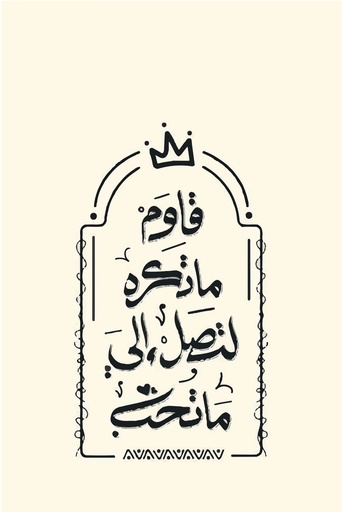 قاوَم
ماتكره
لتصل إلي
ماتحب